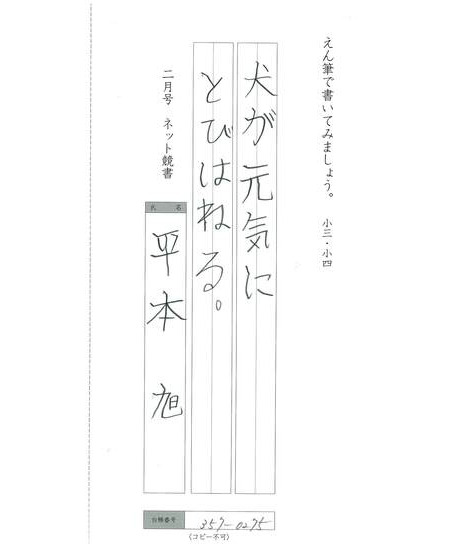 えん筆で書いてみましょう。 小三・小四
犬が元気に
とびはねる。
二月号 ネット競書
氏名
平本 旭
台帳番号
357-0275
(コピー不可)